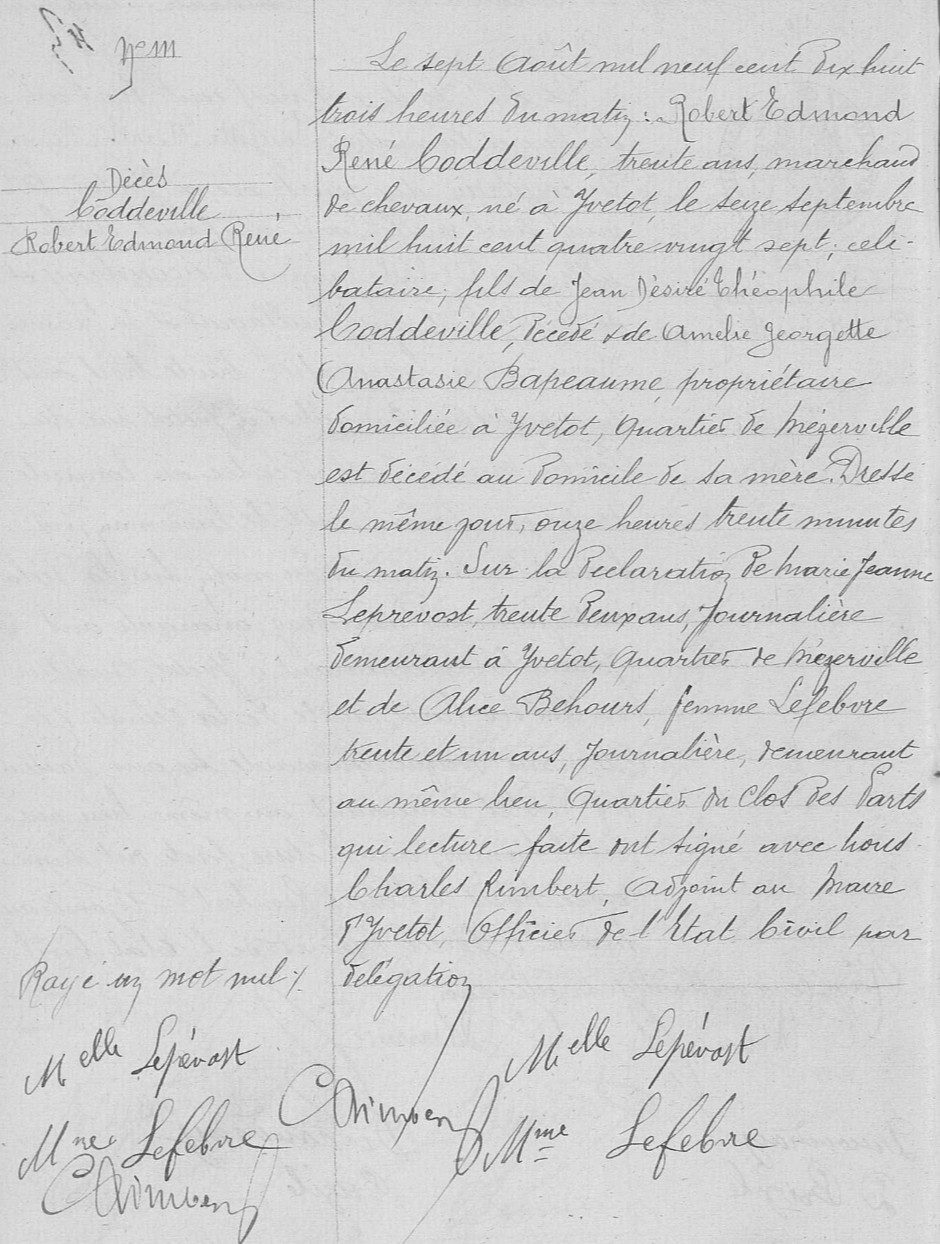 Décès
Coddeville
Robert Edmond René
Le sept Août mil neuf cent dix huit
trois heures du matin : Robert Edmond
René Coddeville, trente ans, marchand
de chevaux, né à Yvetot, le seize septembre
mil huit cent quatre-vingt sept ; céli-
bataire ; fils de Jean Désiré Théophile
Coddeville, décédé & de Amélie Georgette
Anastasie Bapeaume, propriétaire
domiciliée à Yvetot, quartier de Mézerville
est décédé au domicile de sa mère. Dressé
le même jour, onze heures trente minutes
du matin. Sur la déclaration de Marie Jeanne
Leprevost, trente deux ans, Journalière
demeurant à Yvetot, quartier de Mézerville
et de Alice Behours, femme Lefebvre
trente et un ans, Journalière, demeurant
au même lieu, quartier du Clos des Parts
qui lecture faite ont signé avec Nous
Charles Rimbert, Adjoint au Maire
d'Yvetot, Officier de l'Etat Civil par
délégation
Rayé un mot nul
Melle Lepévost
Melle Lepévost
CRimbert
Mme Lefebvre
Mme Lefebvre
CRimbert